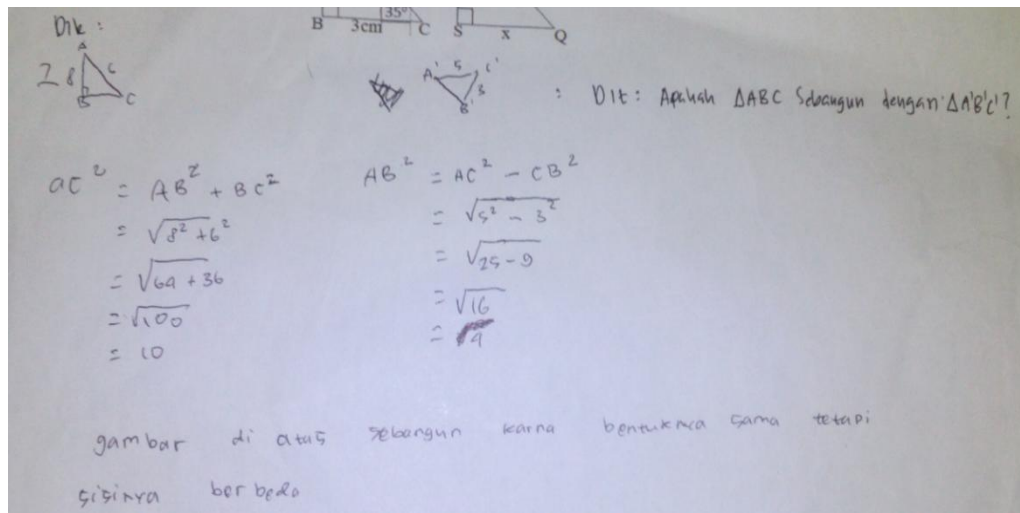 Dik :
35°
B 3cm C S x Q
A
2 8 C
B C
A' 5 C'
3
B'
: Dit : Apakah ΔABC Sebangun dengan ΔA'B'C'?
ac² = AB² + BC²
= √8² + 6²
= √64 + 36
= √100
= 10
AB² = AC² - CB²
= √5² - 3²
= √25 - 9
= √16
= 4
gambar di atas sebangun karna bentuknya sama tetapi
sisinya berbeda